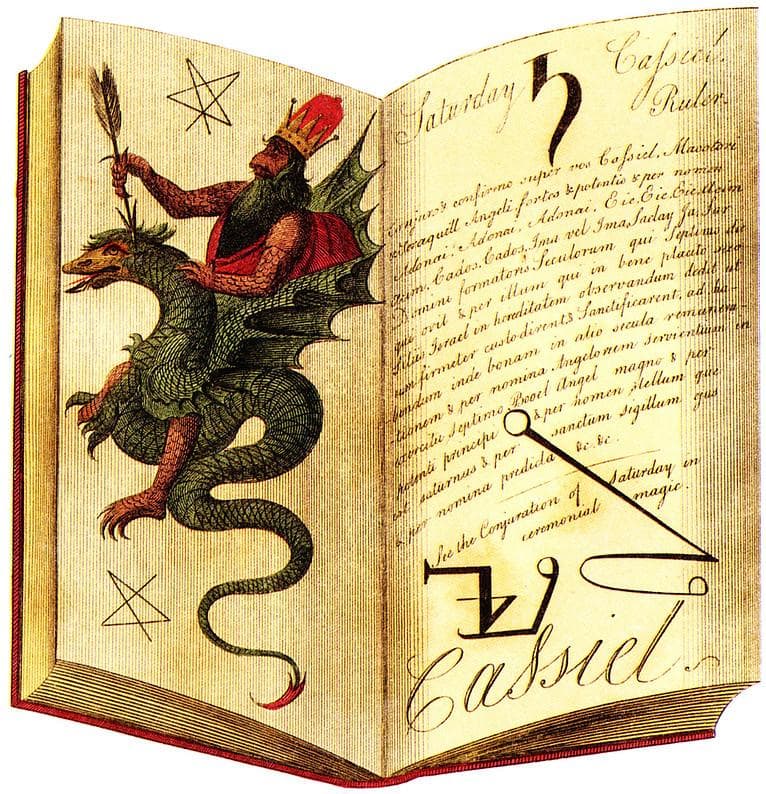 Saturday ♄ Cassiel.
Ruler.
Conjuro & confirmo super vos Cassiel, Macatori
& Seraquill Angeli fortes & potentis & per nomen
Adonai, Adonai, Adonai, Eie, Eie, Eie, Acim
Cados, Cados, Ima vel Ima, Saday, Ja, Sar
Domini formatoris Seculorum qui Septimo die
quievit & per illum qui in bene placito suo
filiis Israel in hereditatem observandum dedit ut
eum firmeter custodirent & Sanctificarent, ad ha-
bendum inde bonam in alio secula remunera-
tionem & per nomina Angelorum Servientium in
exercitu Septimo Booel Angel magno & per
potenti principi & per nomen stellum que
est saturnus & per sanctum sigillum ejus
& per nomina predicta &c. &c.
See the Conjuration of Saturday in
ceremonial magic.
Cassiel.